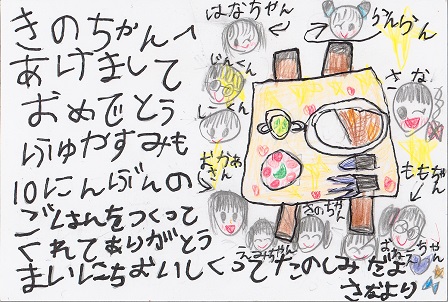 きのちゃんへ
あけまして
おめでとう
ふゆやすみも
10にんぶんの
ごはんをつくって
くれてありがとう
まいにちおいしくってたのしみだよ
さなより
はなちゃん
らんらん
じんくん
しーくん
さな
おかあさん
ももちゃん
えみちゃん
きのちゃん
おねえちゃん